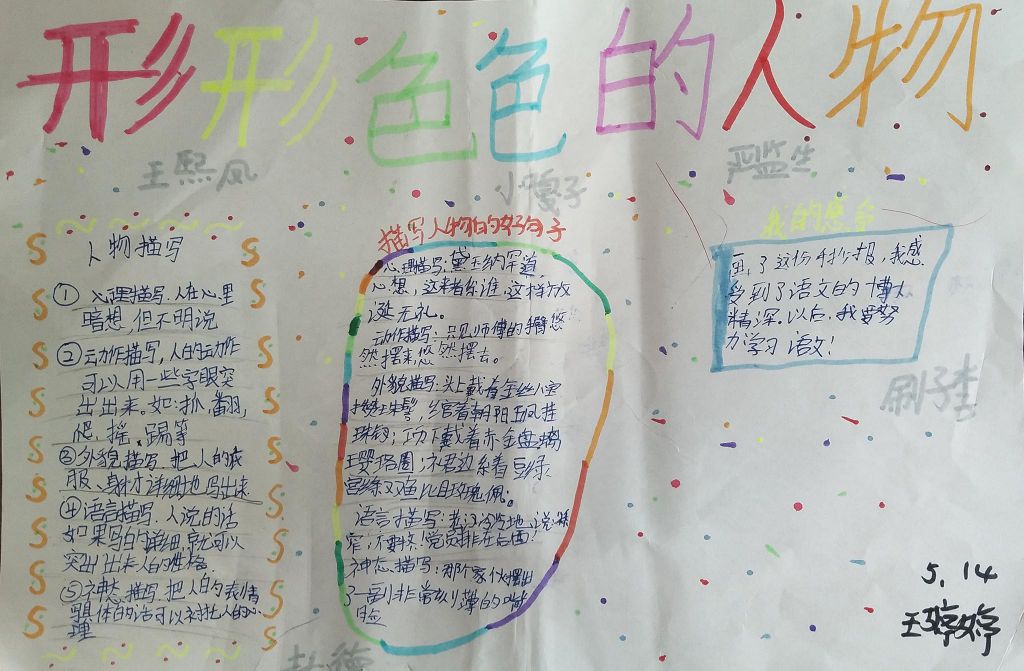 形形色色的人物
王熙凤
小嘎子
严监生
人物描写
① 心理描写.人在心里
暗想,但不明说
② 动作描写,人的动作
可以用一些字眼突
出出来。如:抓,翻,
爬、摇、踢等
③外貌描写.把人的衣
服、身材详细地写出来
④语言描写.人说的话
如果写的详细,就可以
突出出来人的性格.
⑤神态描写.把人的表情
具体的话可以衬托人的心
理
描写人物的好句子
心理描写:黛玉纳罕道
心想,这来者是谁,这样放
诞无礼。
动作描写:只见师傅的手臂悠
然摆来,悠然摆去。
外貌描写:头上戴着金丝八宝
攒珠髻,绾着朝阳五凤挂
珠钗;项下戴着赤金盘螭
璎珞圈;裙边系着豆绿
宫绦双鱼比目玫瑰佩。
语言描写:老汉冷冷地说:
窄,不要挤!党员排在后面!
神态描写:那个家伙摆出
了一副非常刻薄的嘴
脸
我的感
画了这份手抄报,我感
受到了语文的博大
精深.以后,我要努
力学习语文!
刷子李
5.14
王婷婷